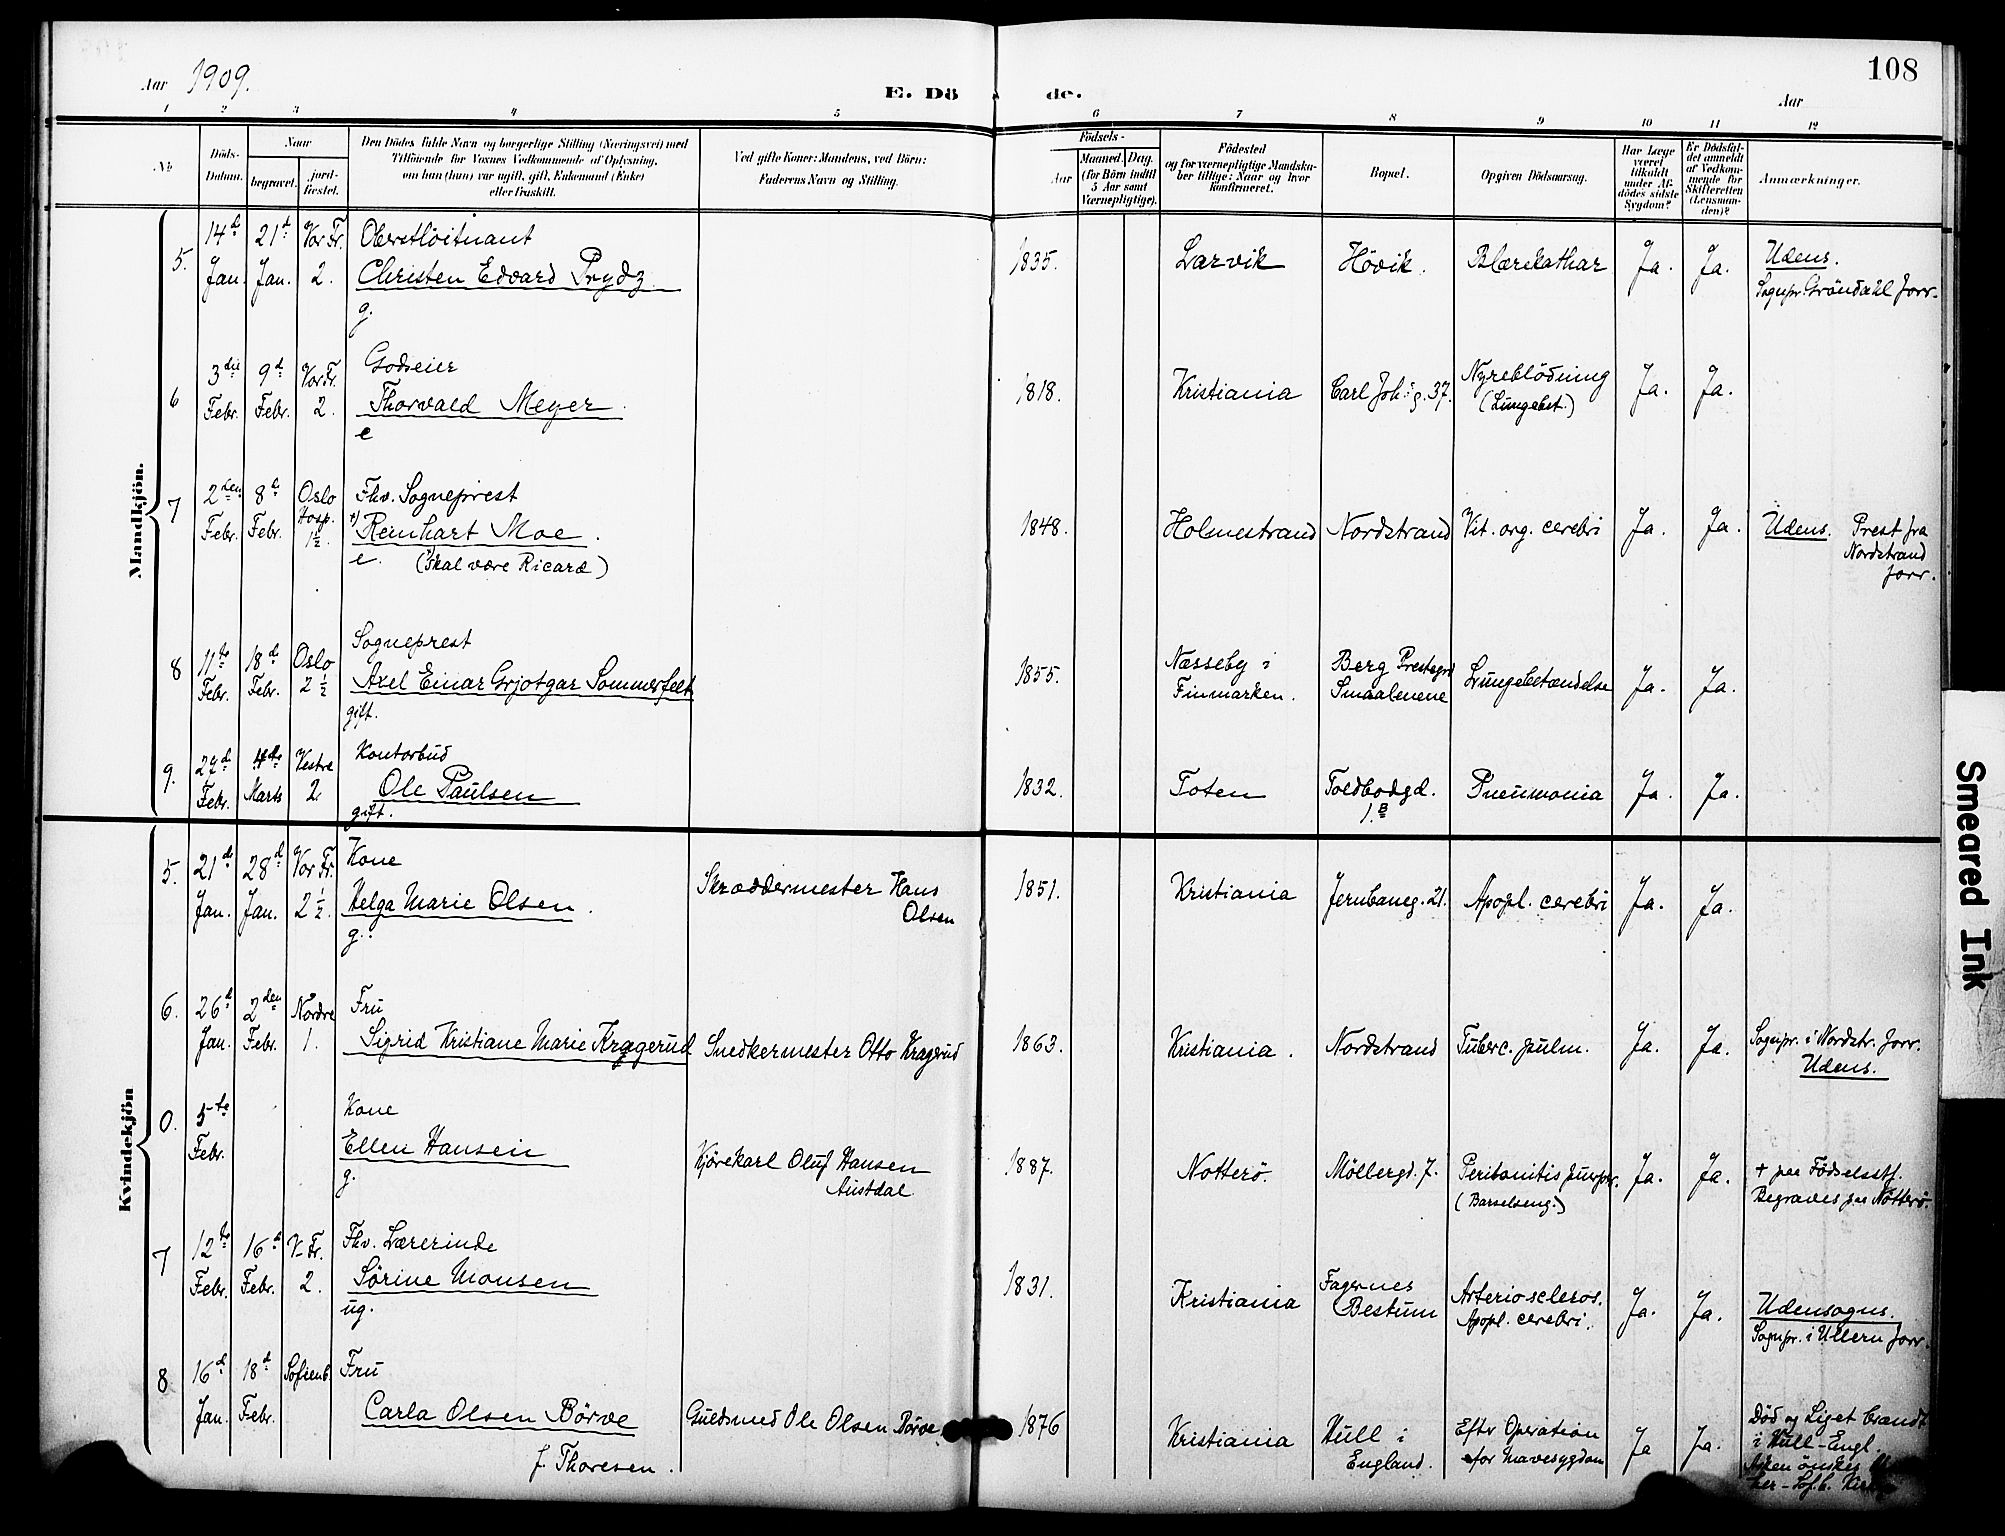 Aar 1909.
E. Dö de.
108
Aar
1 2 3 4 5 6 7 8 9 10 11 12
No.
Döds-
Datum.
Naar
begravet.
jord-
fæstet.
Den Dödes fulde Navn og borgerlige Stilling (Næringsvei) med
Tilföiende for Voxnes Vedkommende af Oplysning,
om han (hun) var ugift, gift, Enkemand (Enke)
eller fraskilt.
Ved gifte Koner: Mandens, ved Börn:
Faderens Navn og Stilling.
Födsels-
Aar
Maaned. Dag.
(for Börn indtil
5 Aar samt
Værnepligtige).
Födested
og for værnepligtige Mandska-
ber tillige: Naar og hvor
konfirmeret.
Bopæl.
Opgiven Dödsaarsag.
Har Læge
været
tilkaldt
under Af-
dödes sidste
Sygdom?
Er Dödsfal-
det anmeldt
af Vedkom-
mende for
Skifteretten
(Lensman-
den)?
Anmærkninger.
Mandkjön.
5.
14d
Jan.
21d
Jan.
Vor Fr.
2.
Oberstlöitnant
Christen Edvard Prydz
g.
1835.
Larvik
Hövik.
Blærekathar
Ja.
Ja.
Udens.
Sognpr. Gröndahl forr.
6
3die
Febr.
9d
Febr.
Vor Fr.
2.
Godseier
Thorvald Meyer.
e
1818.
Kristiania
Carl Joh.s g. 37.
Nyreblödning
(Lungebet.)
Ja.
Ja.
7
2den
Febr.
8d
Febr.
Oslo
Hosp.
1½
Fhv. Sogneprest
Reinhart Moe.
e. (skal være Ricard)
1848.
Holmestrand
Nordstrand
Vit. org. cerebri
Ja.
Ja.
Udens. Prest fra
Nordstrand
forr.
8
11te
Febr.
18d
Febr.
Oslo
2½
Sogneprest
Axel Einar Grjotgar Sommerfelt
gift.
1855.
Næsseby i
Finmarken.
Berg Prestegrd
Smaalenene
Lungebetændelse
Ja.
Ja.
9.
27d
Febr.
4de
Marts
Vestre
2.
Kontorbud
Ole Paulsen
gift.
1832.
Toten
Toldbodgd.
1.B
Pneumonia
Ja.
Ja.
Kvindekjön
5.
21d
Jan.
28d
Jan.
Vor Fr.
2½
Kone
Helga Marie Olsen.
g.
Skræddermester Hans
Olsen
1851.
Kristiania
Jernbaneg. 21.
Apopl. cerebri
Ja.
Ja.
6.
26d
Jan.
2den
Febr.
Nordre
1.
Fru
Sigrid Kristiane Marie Kragerud
Snedkermester Otto Kragerud
1863.
Kristiania.
Nordstrand
Tuberc. pulm.
Ja.
Ja.
Sognpr. i Nordstr. forr.
Udens.
0.
5te
Febr.
Kone
Ellen Hansen
g.
Kjørekarl Oluf Hansen
Austdal
1887.
Notterö.
Möllergd. 7.
Peritonitis puerper.
(Barselseng.)
Ja.
Ja.
+ paa Födselsstf.
Begraves paa Nötterö.
7
12te
Febr.
16d
Febr.
V. Fr.
2.
Fhv. Lærerinde
Sörine Monsen
ug.
1831.
Kristiania
Fagernes
Bestum
Arterioscleros.
Apopl. cerebri.
Ja.
Ja.
Udensogns.
Sognpr. i Ullern forr.
8
16d
Jan.
18d
Febr.
Sofienb.
Fru
Carla Olsen Börve
f. Thoresen.
Guldsmed Ole Olsen Börve
1876
Kristiania
Hull i
England.
Eftr Operation
for Mavesygdom
Ja
Ja.
Död og Liget brændt
i Hull-Engl.
Asken önskes
Smeared Ink